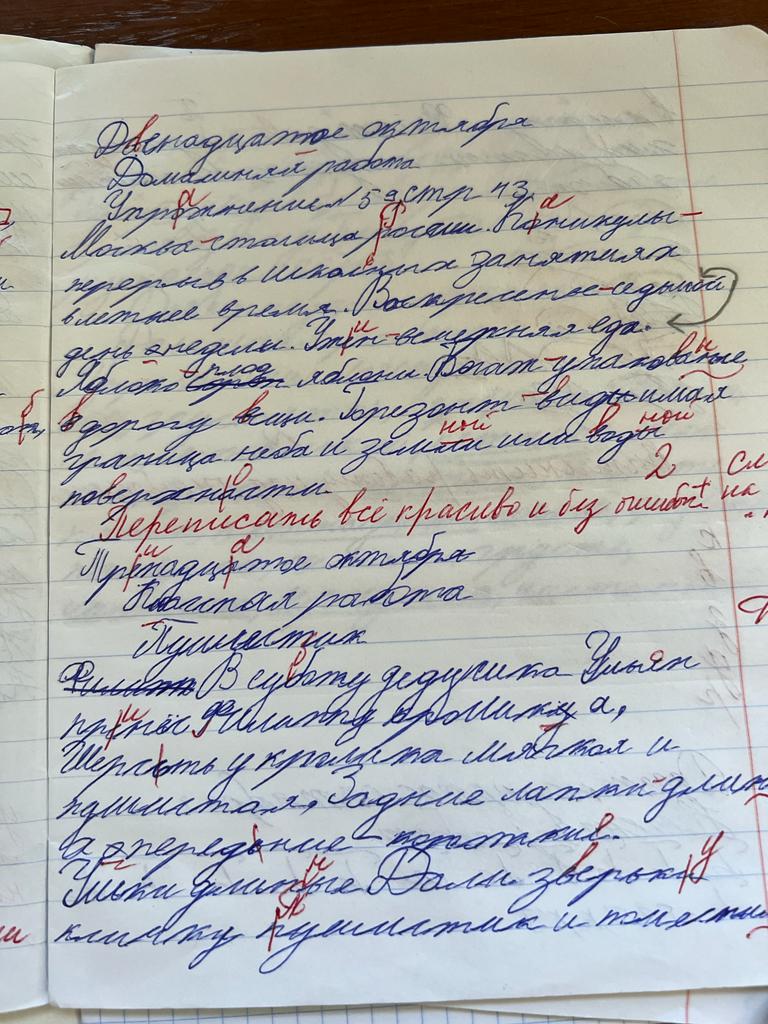 Двенадцатое октября
Домашняя работа
Упражнение 59 стр 43.
Москва-столица россии. Каникулы-
перерыв в школьных занятиях
в летнее время. Воскресенье-седьмой
день недели. Ужин-вечерняя еда.
Яблоко плод яблони. Богаж-упакованые
в дорогу вещи. Горезонт-видимая
граница неба и земной или водной
поверхности.
2
Переписать всё красиво и без ошибок
Тринадцатое октября
Классная работа
Пушистик
В суботу дедушка Ульян
принёс Филиппу кролика,
Шерсть у кролика мягкая и
пушистая, Задние лапки-длин
а передние-короткие.
Ушки длинные Дали зверьку
кличку пушистик и